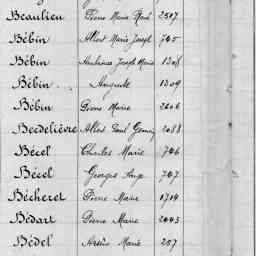 Beaulieu Pierre Marie René 2517
Bébin Albert Marie Joseph 745
Bébin Joseph Marie 1208
Bébin Auguste 1209
Bébin Pierre Marie 2616
Becdelièvre Albert Paul 2058
Bécel Charles Marie 746
Bécel Georges 747
Bécheret Pierre Marie 1714
Bédart Pierre Marie 2443
Bédel Arsène Marie 257